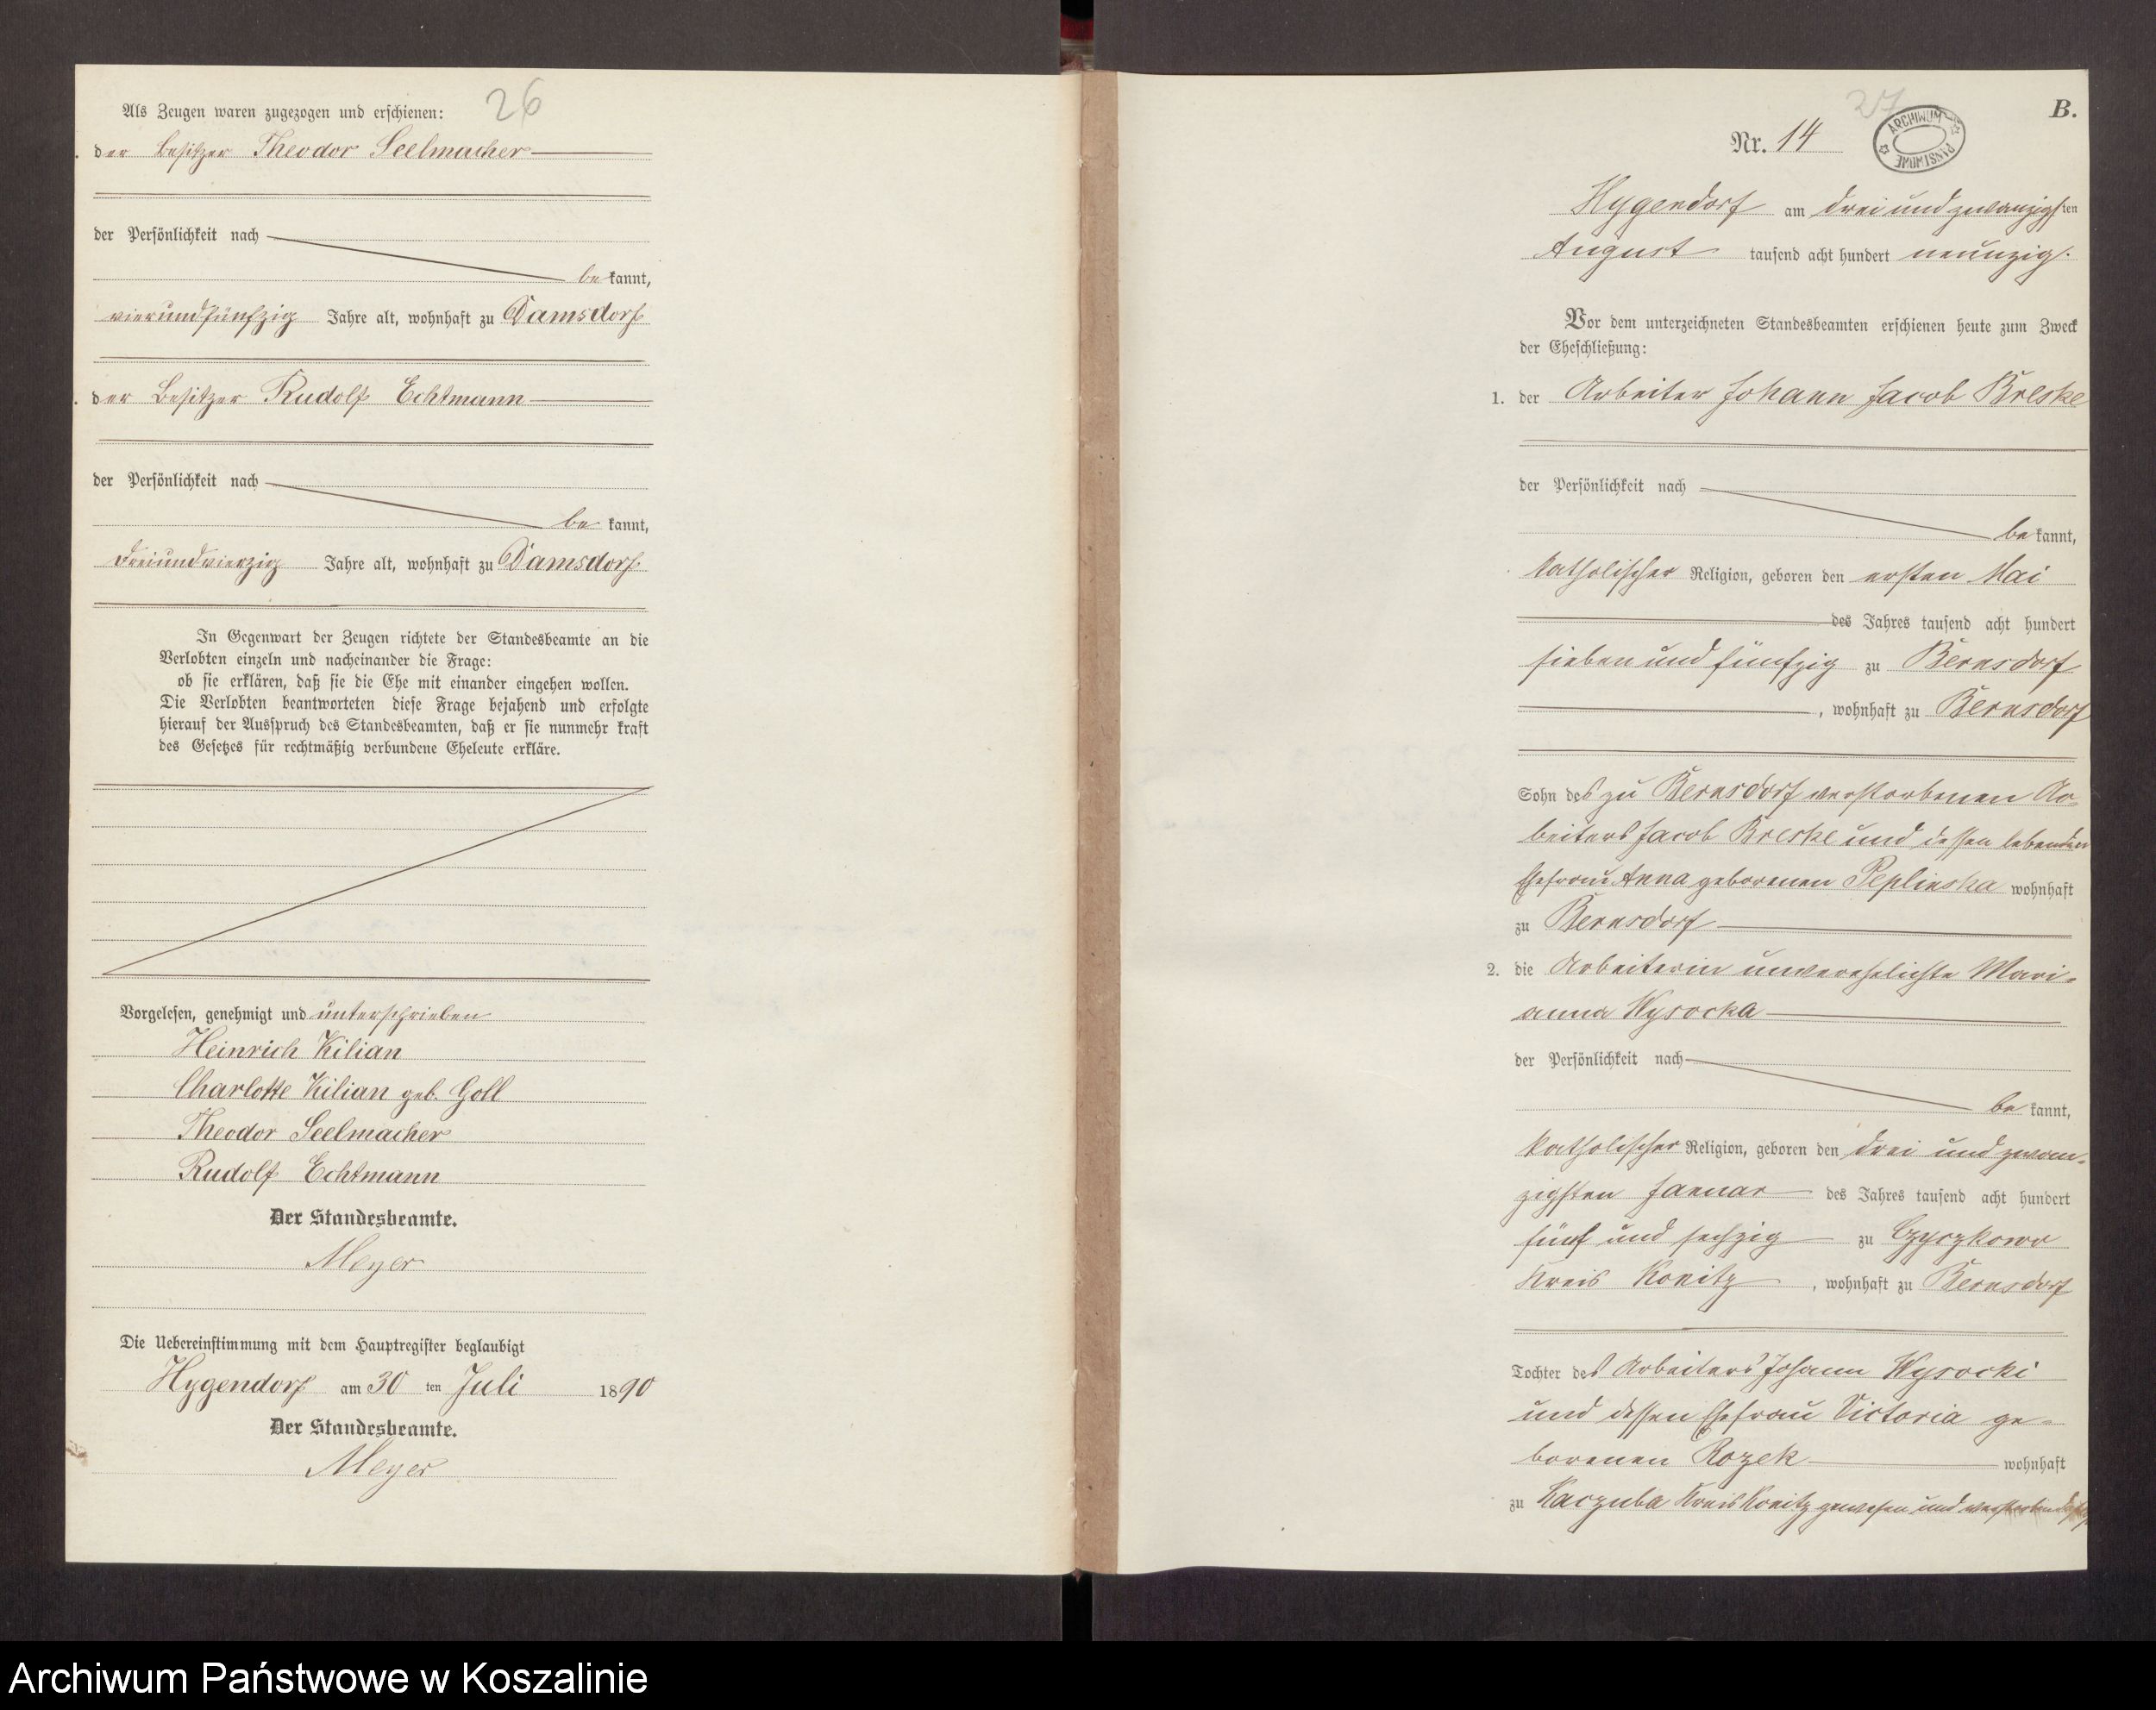 26
Als Zeugen waren zugezogen und erschienen:
der Besitzer Theodor Seelmacher
der Persönlichkeit nach
be kannt,
vierundfünfzig Jahre alt, wohnhaft zu Damsdorf
der Besitzer Rudolf Echtmann
der Persönlichkeit nach
be kannt,
dreiundvierzig Jahre alt, wohnhaft zu Damsdorf
In Gegenwart der Zeugen richtete der Standesbeamte an die
Verlobten einzeln und nacheinander die Frage:
ob sie erklären, daß sie die Ehe mit einander eingehen wollen.
Die Verlobten beantworteten diese Frage bejahend und erfolgte
hierauf der Ausspruch des Standesbeamten, daß er sie nunmehr kraft
des Gesetzes für rechtmäßig verbundene Eheleute erkläre.
Vorgelesen, genehmigt und unterschrieben
Heinrich Kilian
Charlotte Kilian geb. Goll
Theodor Seelmacher
Rudolf Echtmann
Der Standesbeamte.
Meyer
Die Uebereinstimmung mit dem Hauptregister beglaubigt
Hygendorf am 30 ten Juli 1890
Der Standesbeamte.
Meyer
27
B.
Nr. 14
ARCHIWUM PAŃSTWOWE
Hygendorf am drei und zwanzigsten
August tausend acht hundert neunzig.
Vor dem unterzeichneten Standesbeamten erschienen heute zum Zweck
der Eheschließung:
1. der Arbeiter Johann Jacob Breske
der Persönlichkeit nach
be kannt,
katholischer Religion, geboren den ersten Mai
des Jahres tausend acht hundert
sieben und fünfzig zu Bernsdorf
, wohnhaft zu Bernsdorf
Sohn des zu Bernsdorf verstorbenen Ar-
beiters Jacob Breske und dessen lebenden
Ehefrau Anna geborenen Peplinska wohnhaft
zu Bernsdorf
2. die Arbeiterin unverehelichte Mari-
anna Wysocka
der Persönlichkeit nach
be kannt,
katholischer Religion, geboren den drei und zwan-
zigsten Januar des Jahres tausend acht hundert
fünf und sechzig zu Czyczkowo
Kreis Konitz, wohnhaft zu Bernsdorf
Tochter des Arbeiters Johann Wysocki
und dessen Ehefrau Victoria ge-
borenen Rozek wohnhaft
zu Kaczuba Kreis Konitz gewesen und verstorben
Archiwum Państwowe w Koszalinie